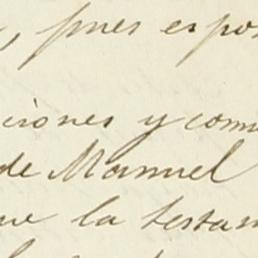 , pues espos
ciones y comu
de Manuel
que la testam